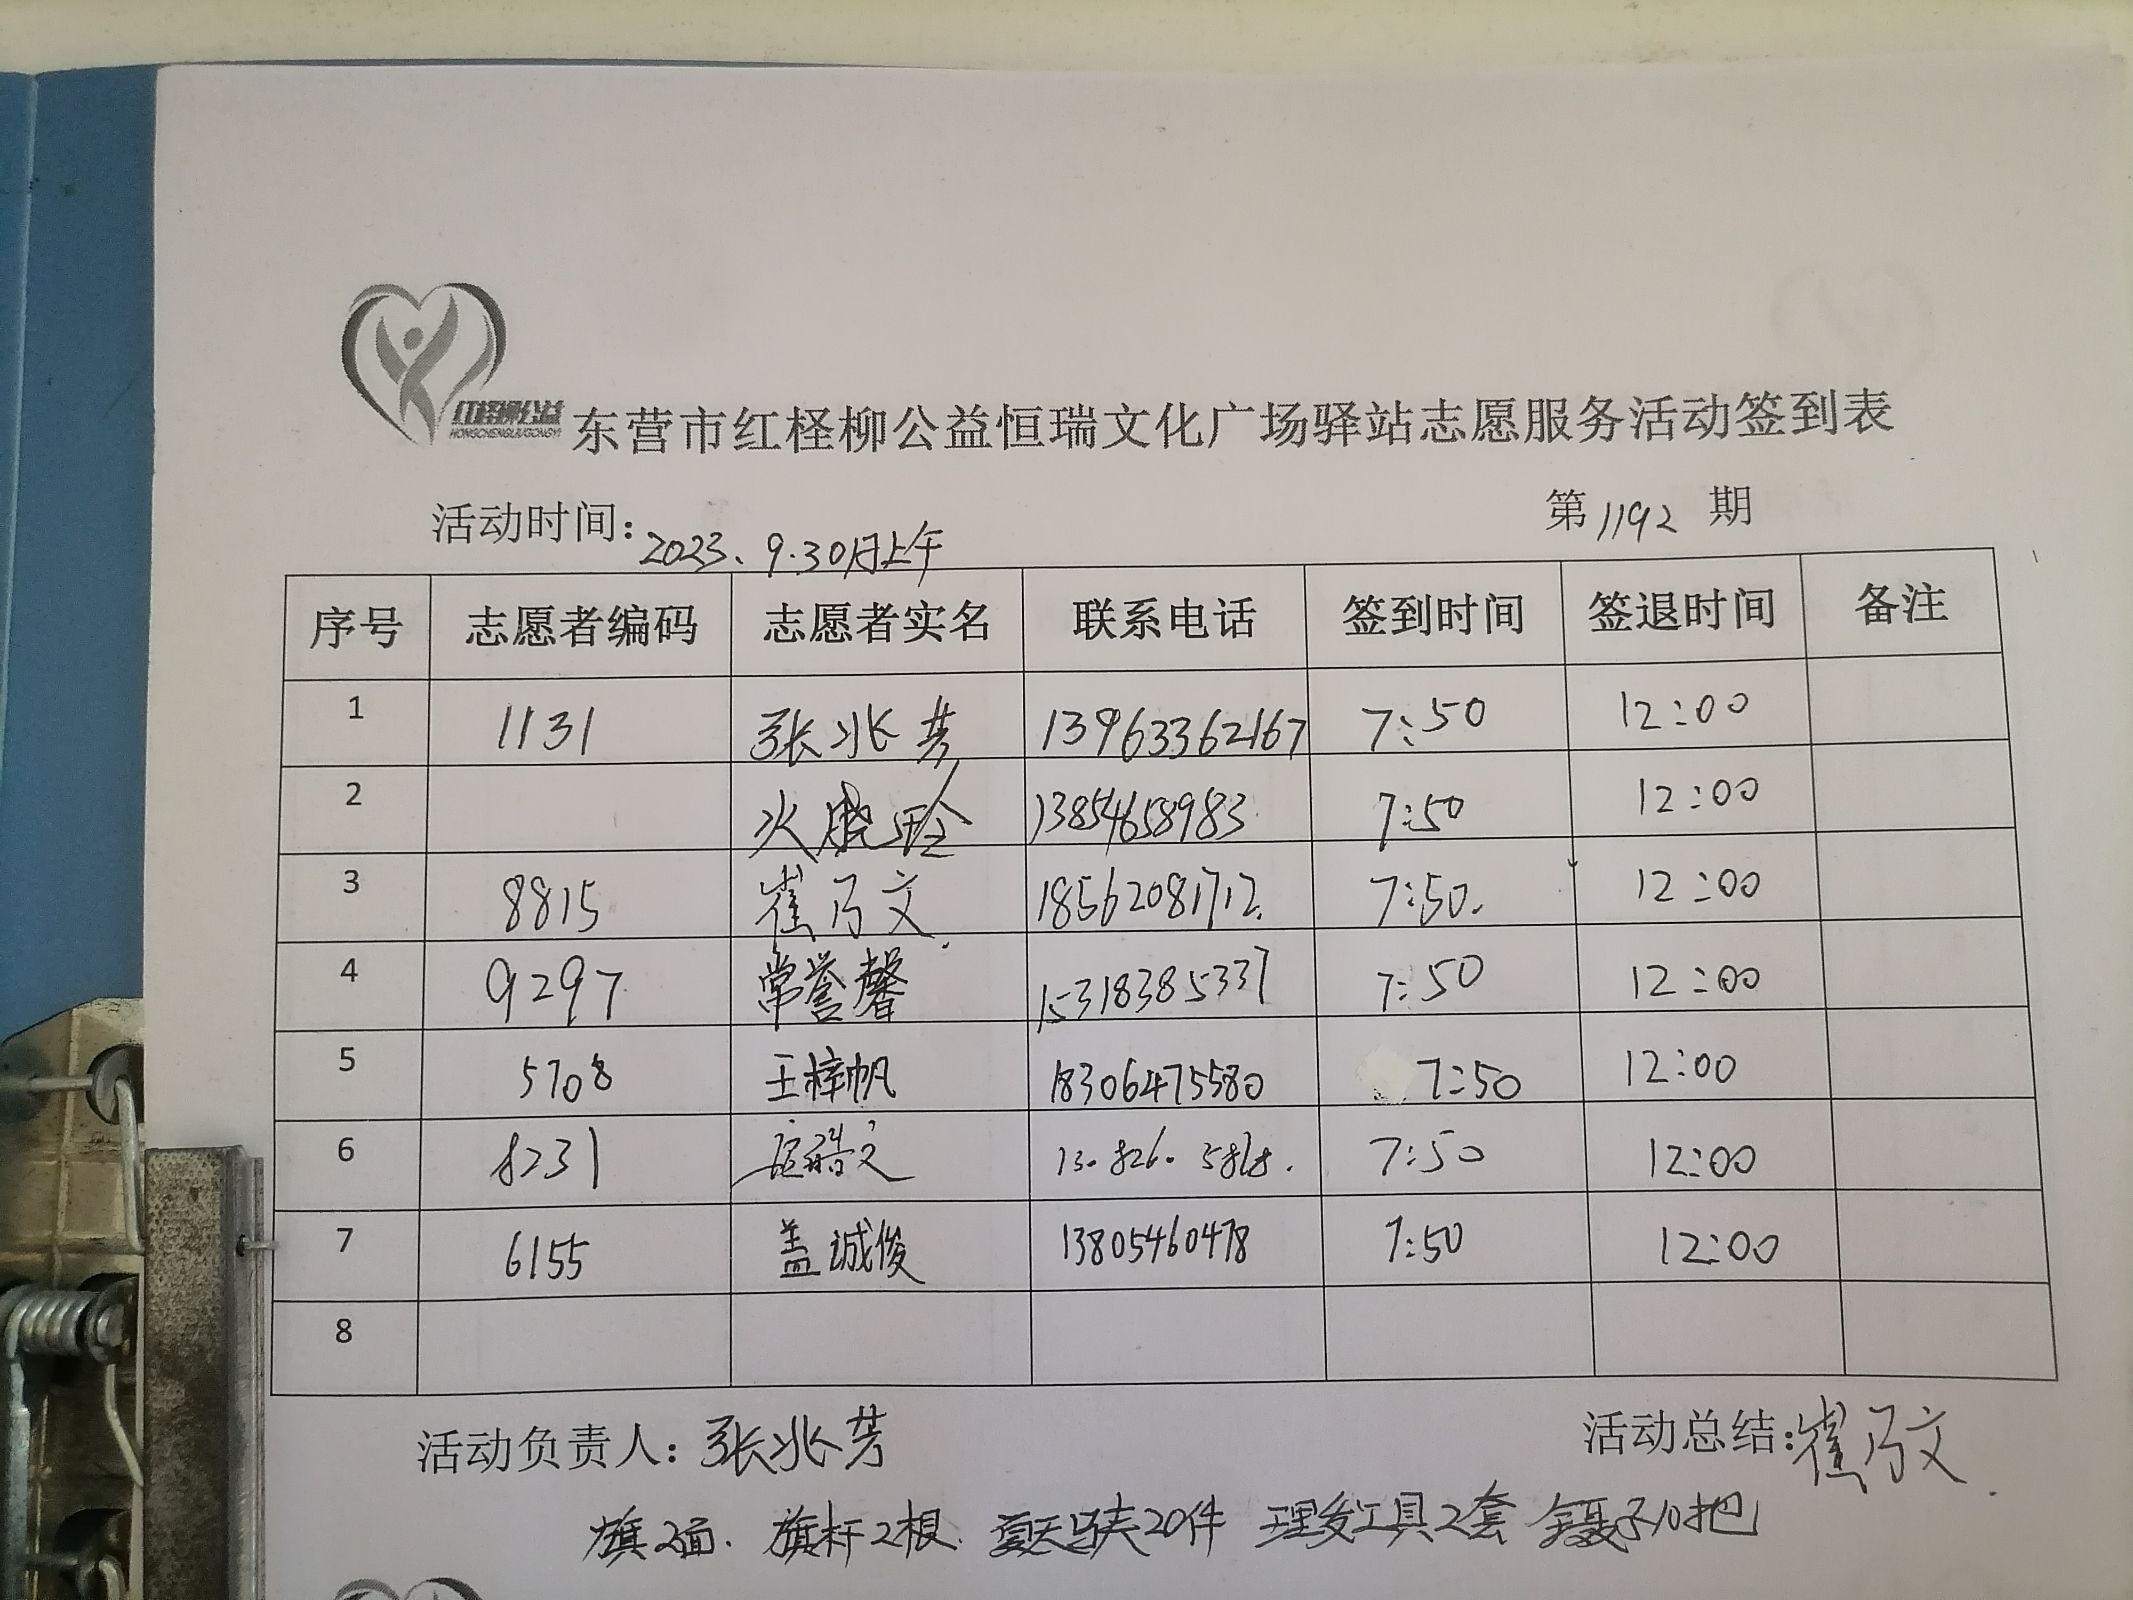 红柽柳公益
HONGCHENGLIUGONGYI
东营市红柽柳公益恒瑞文化广场驿站志愿服务活动签到表
活动时间：2023、9.30月上午 第1192期
序号 志愿者编码 志愿者实名 联系电话 签到时间 签退时间 备注
1 1131 张兆芳 13963362167 7:50 12:00
2 13854658983 7:50 12:00
3 8815 崔乃文 18562081712. 7:50. 12:00
4 9297 常誉馨 15318385337 7:50 12:00
5 5708 王梓帆 18306475580 7:50 12:00
6 8231 7:50 12:00
7 6155 盖诚俊 13805460478 7:50 12:00
8
活动负责人：张兆芳 活动总结：崔乃文
旗2面. 旗杆2根. 夏天马夹20件 理发工具2套 镊子10把